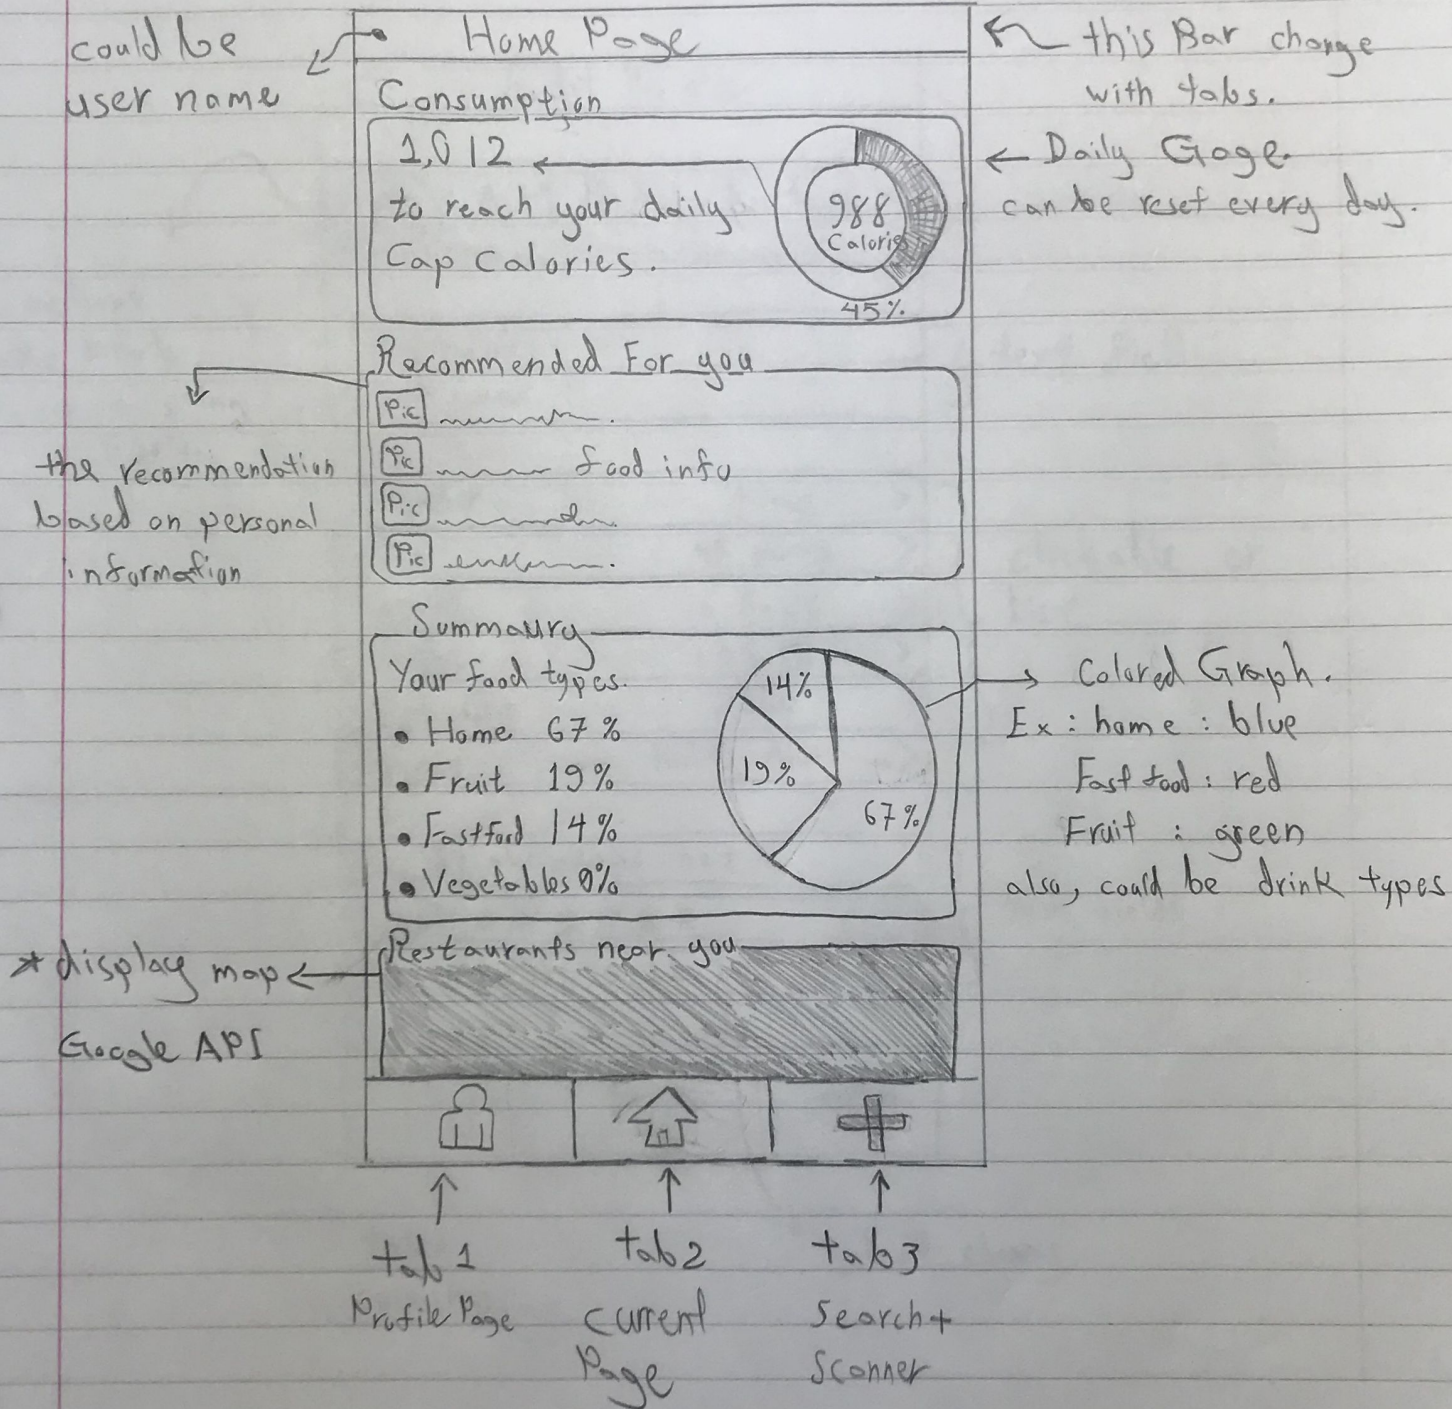 could be
user name
Home Page
this Bar change
with tabs.
Consumption
1,012
to reach your daily
Cap Calories.
988
Calories
45%
Daily Gage.
can be reset every day.
Recommended For you
Pic
Pic food info
Pic
Pic
the recommendation
based on personal
information
Summaury
Your food types.
• Home 67%
• Fruit 19%
• Fastfood 14%
• Vegetables 0%
14%
19%
67%
Colored Graph.
Ex: home : blue
Fast food : red
Fruit : green
also, could be drink types
Restaurants near you
* display map
Google API
tab 1
Profile Page
tab 2
current
Page
tab 3
Search +
Scanner